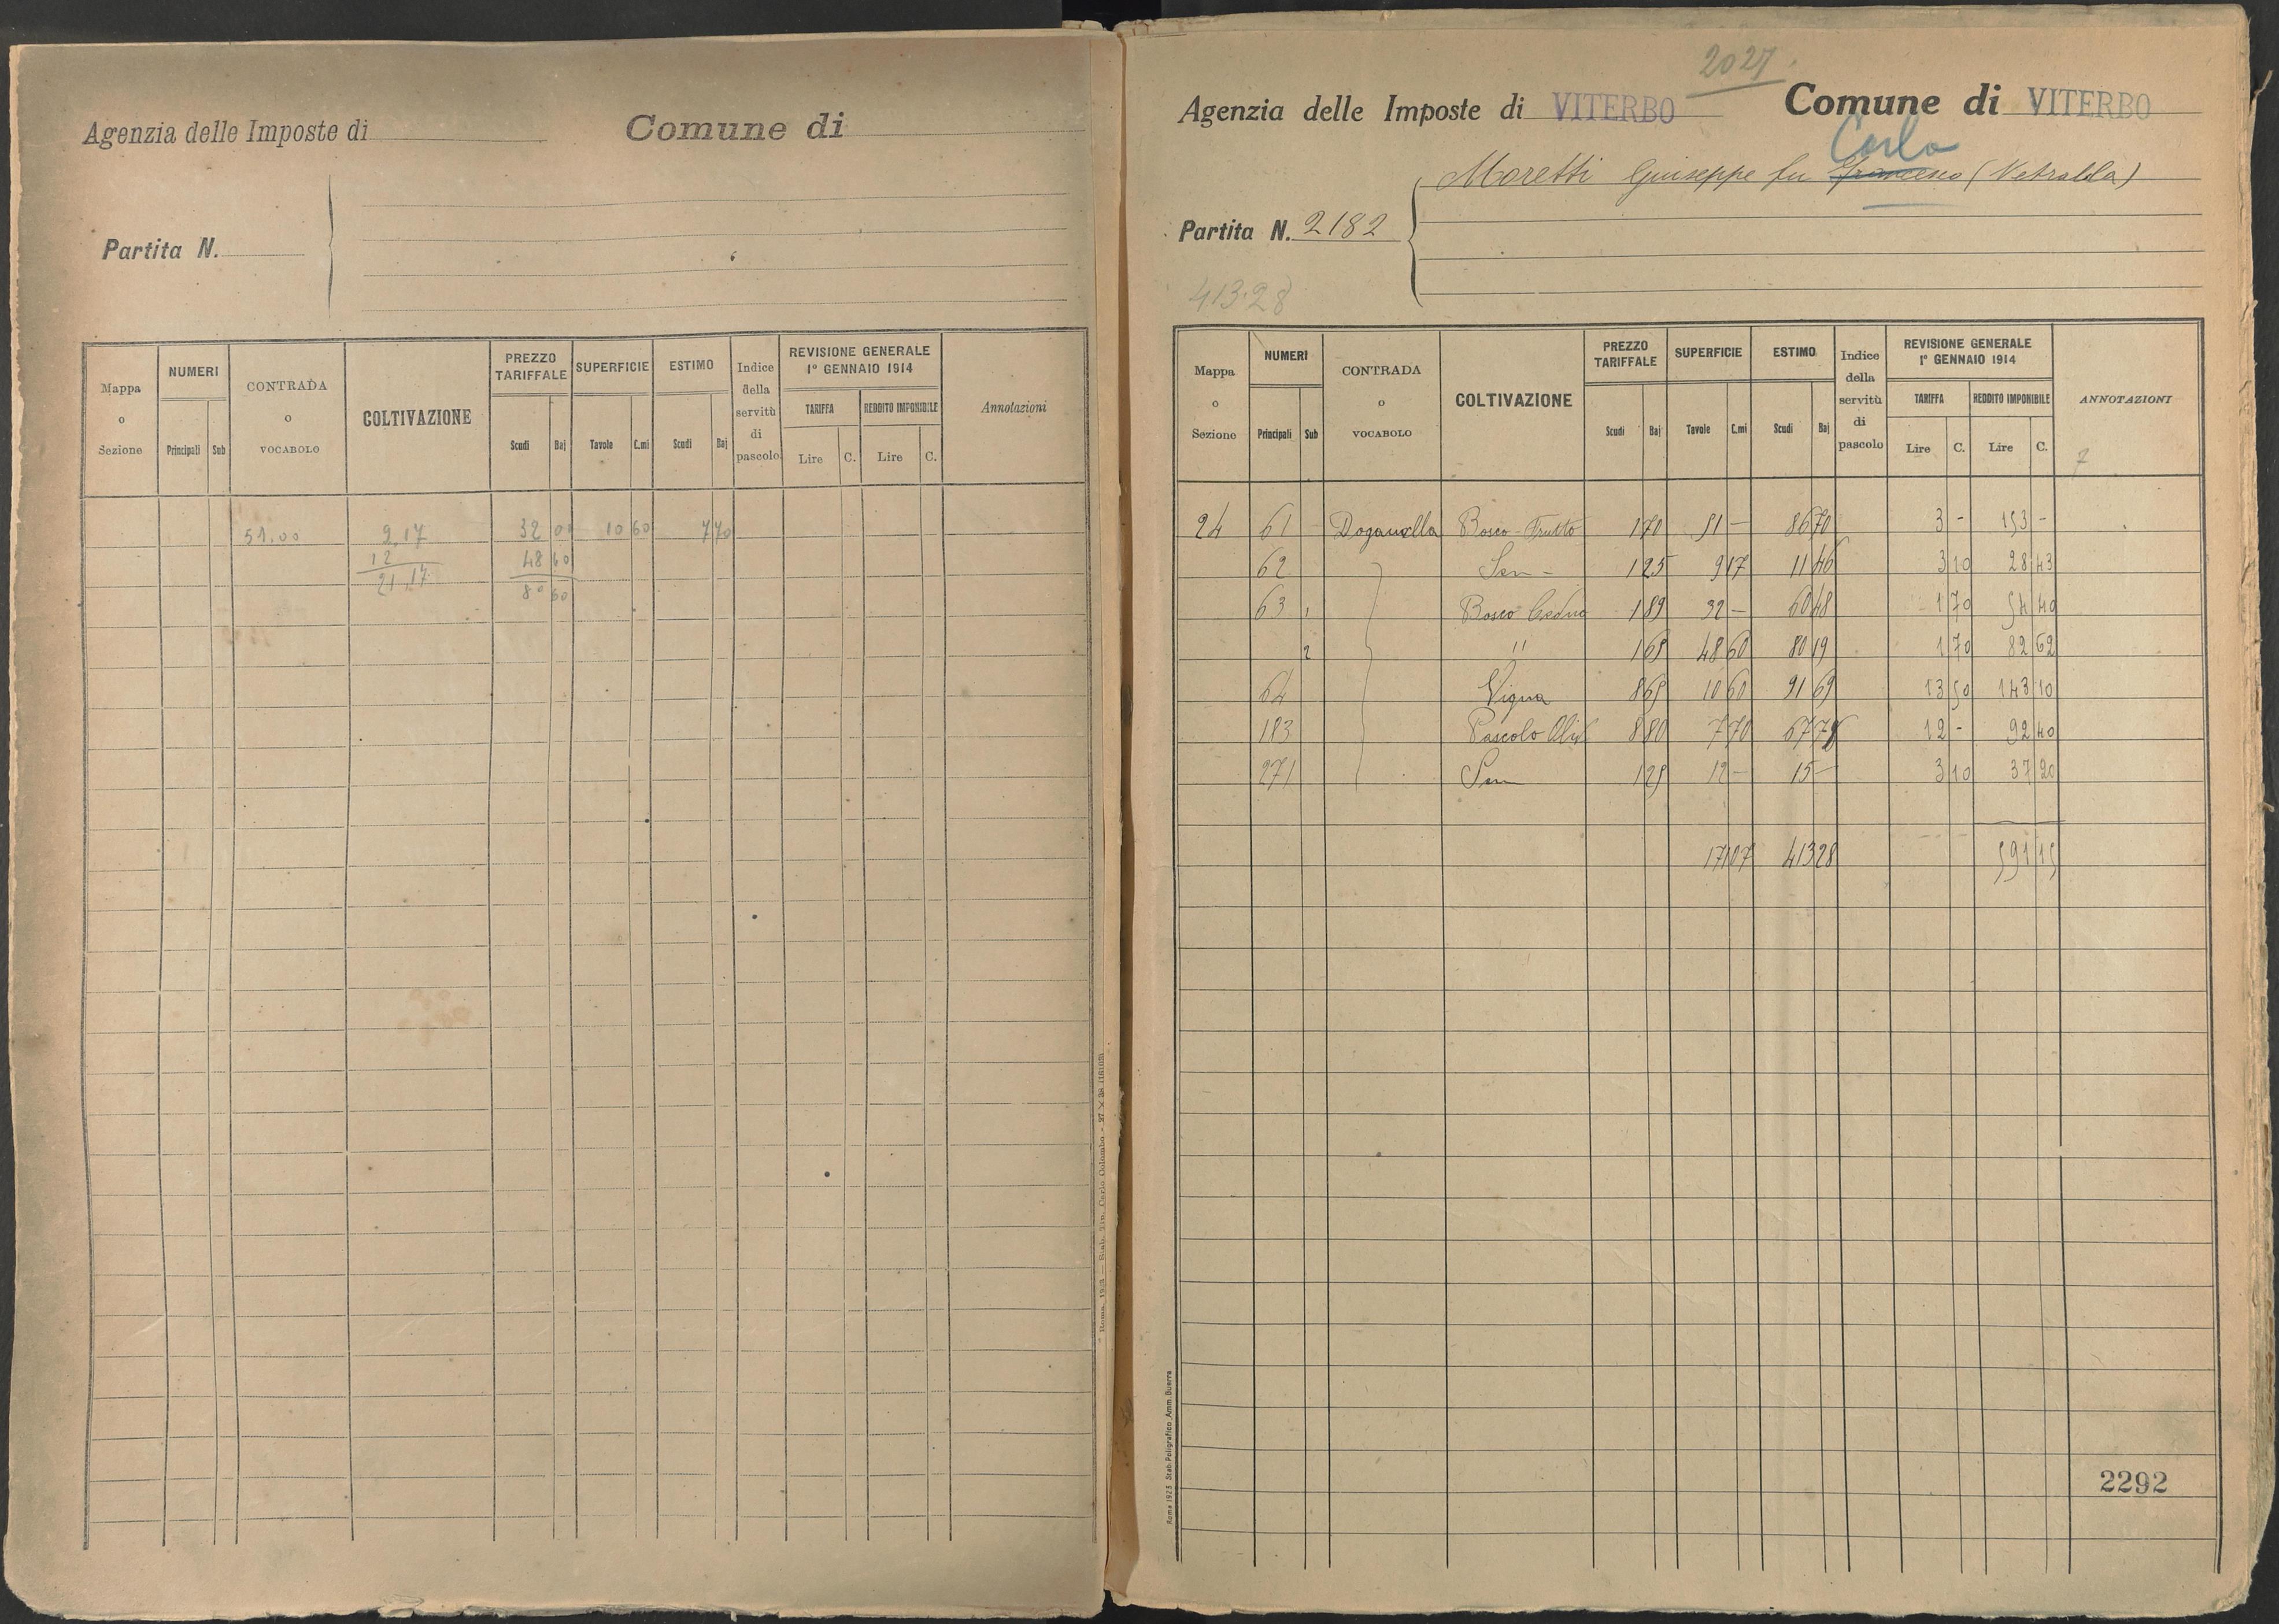 Agenzia delle Imposte di
Comune di
Partita N.
Mappa o Sezione
NUMERI
Principali Sub
CONTRADA o VOCABOLO
COLTIVAZIONE
PREZZO TARIFFALE
Scudi Baj
SUPERFICIE
Tavole C.mi
ESTIMO
Scudi Baj
Indice della servitù di pascolo
REVISIONE GENERALE 1° GENNAIO 1914
TARIFFA
Lire C.
REDDITO IMPONIBILE
Lire C.
Annotazioni
51.00 9,17 32 00 10 60 7 70
12 48 60
21,17 80 60
2027
Agenzia delle Imposte di VITERBO Comune di VITERBO
Carlo
Moretti Giuseppe fu Francesco (Vetralla)
Partita N. 2182
413.28
Mappa o Sezione
NUMERI
Principali Sub
CONTRADA o VOCABOLO
COLTIVAZIONE
PREZZO TARIFFALE
Scudi Baj
SUPERFICIE
Tavole C.mi
ESTIMO
Scudi Baj
Indice della servitù di pascolo
REVISIONE GENERALE 1° GENNAIO 1914
TARIFFA
Lire C.
REDDITO IMPONIBILE
Lire C.
ANNOTAZIONI
7
24 61 Doganella Bosco Frutto 1 70 51 — 86 70 3 - 153 -
62 Sem - 1 25 9 17 11 46 3 10 28 43
63 1 Bosco Ceduo 1 89 32 — 60 48 1 70 54 40
2 " 1 65 48 60 80 19 1 70 82 62
64 Vigna 8 65 10 60 91 69 13 50 143 10
183 Pascolo Oliv 8 80 7 70 67 76 12 - 92 40
271 Sem 1 25 12 — 15 — 3 10 37 20
171 07 413 28 591 15
2292
Roma 1923 Stab. Poligrafico Amm. Guerra